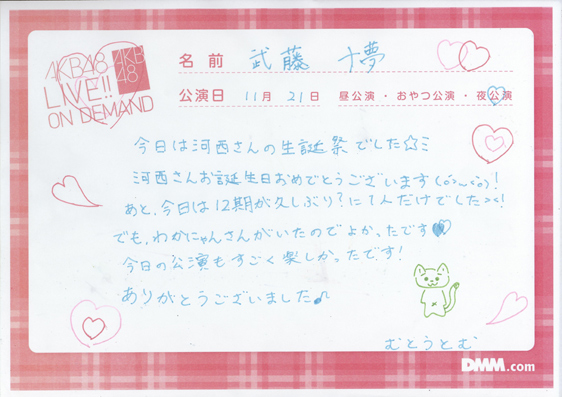 AKB48
LIVE!!
ON DEMAND
AKB
48
名前 武藤 十夢
公演日 11月 21日 昼公演・おやつ公演・夜公演
今日は河西さんの生誕祭でした☆ミ
河西さんお誕生日おめでとうございます
あと、今日は12期が久しぶり?に1人だけでした><!
でも、わかにゃんさんがいたのでよかったです
今日の公演もすごく楽しかったです!
ありがとうございました♪
むとうとむ
DMM.com